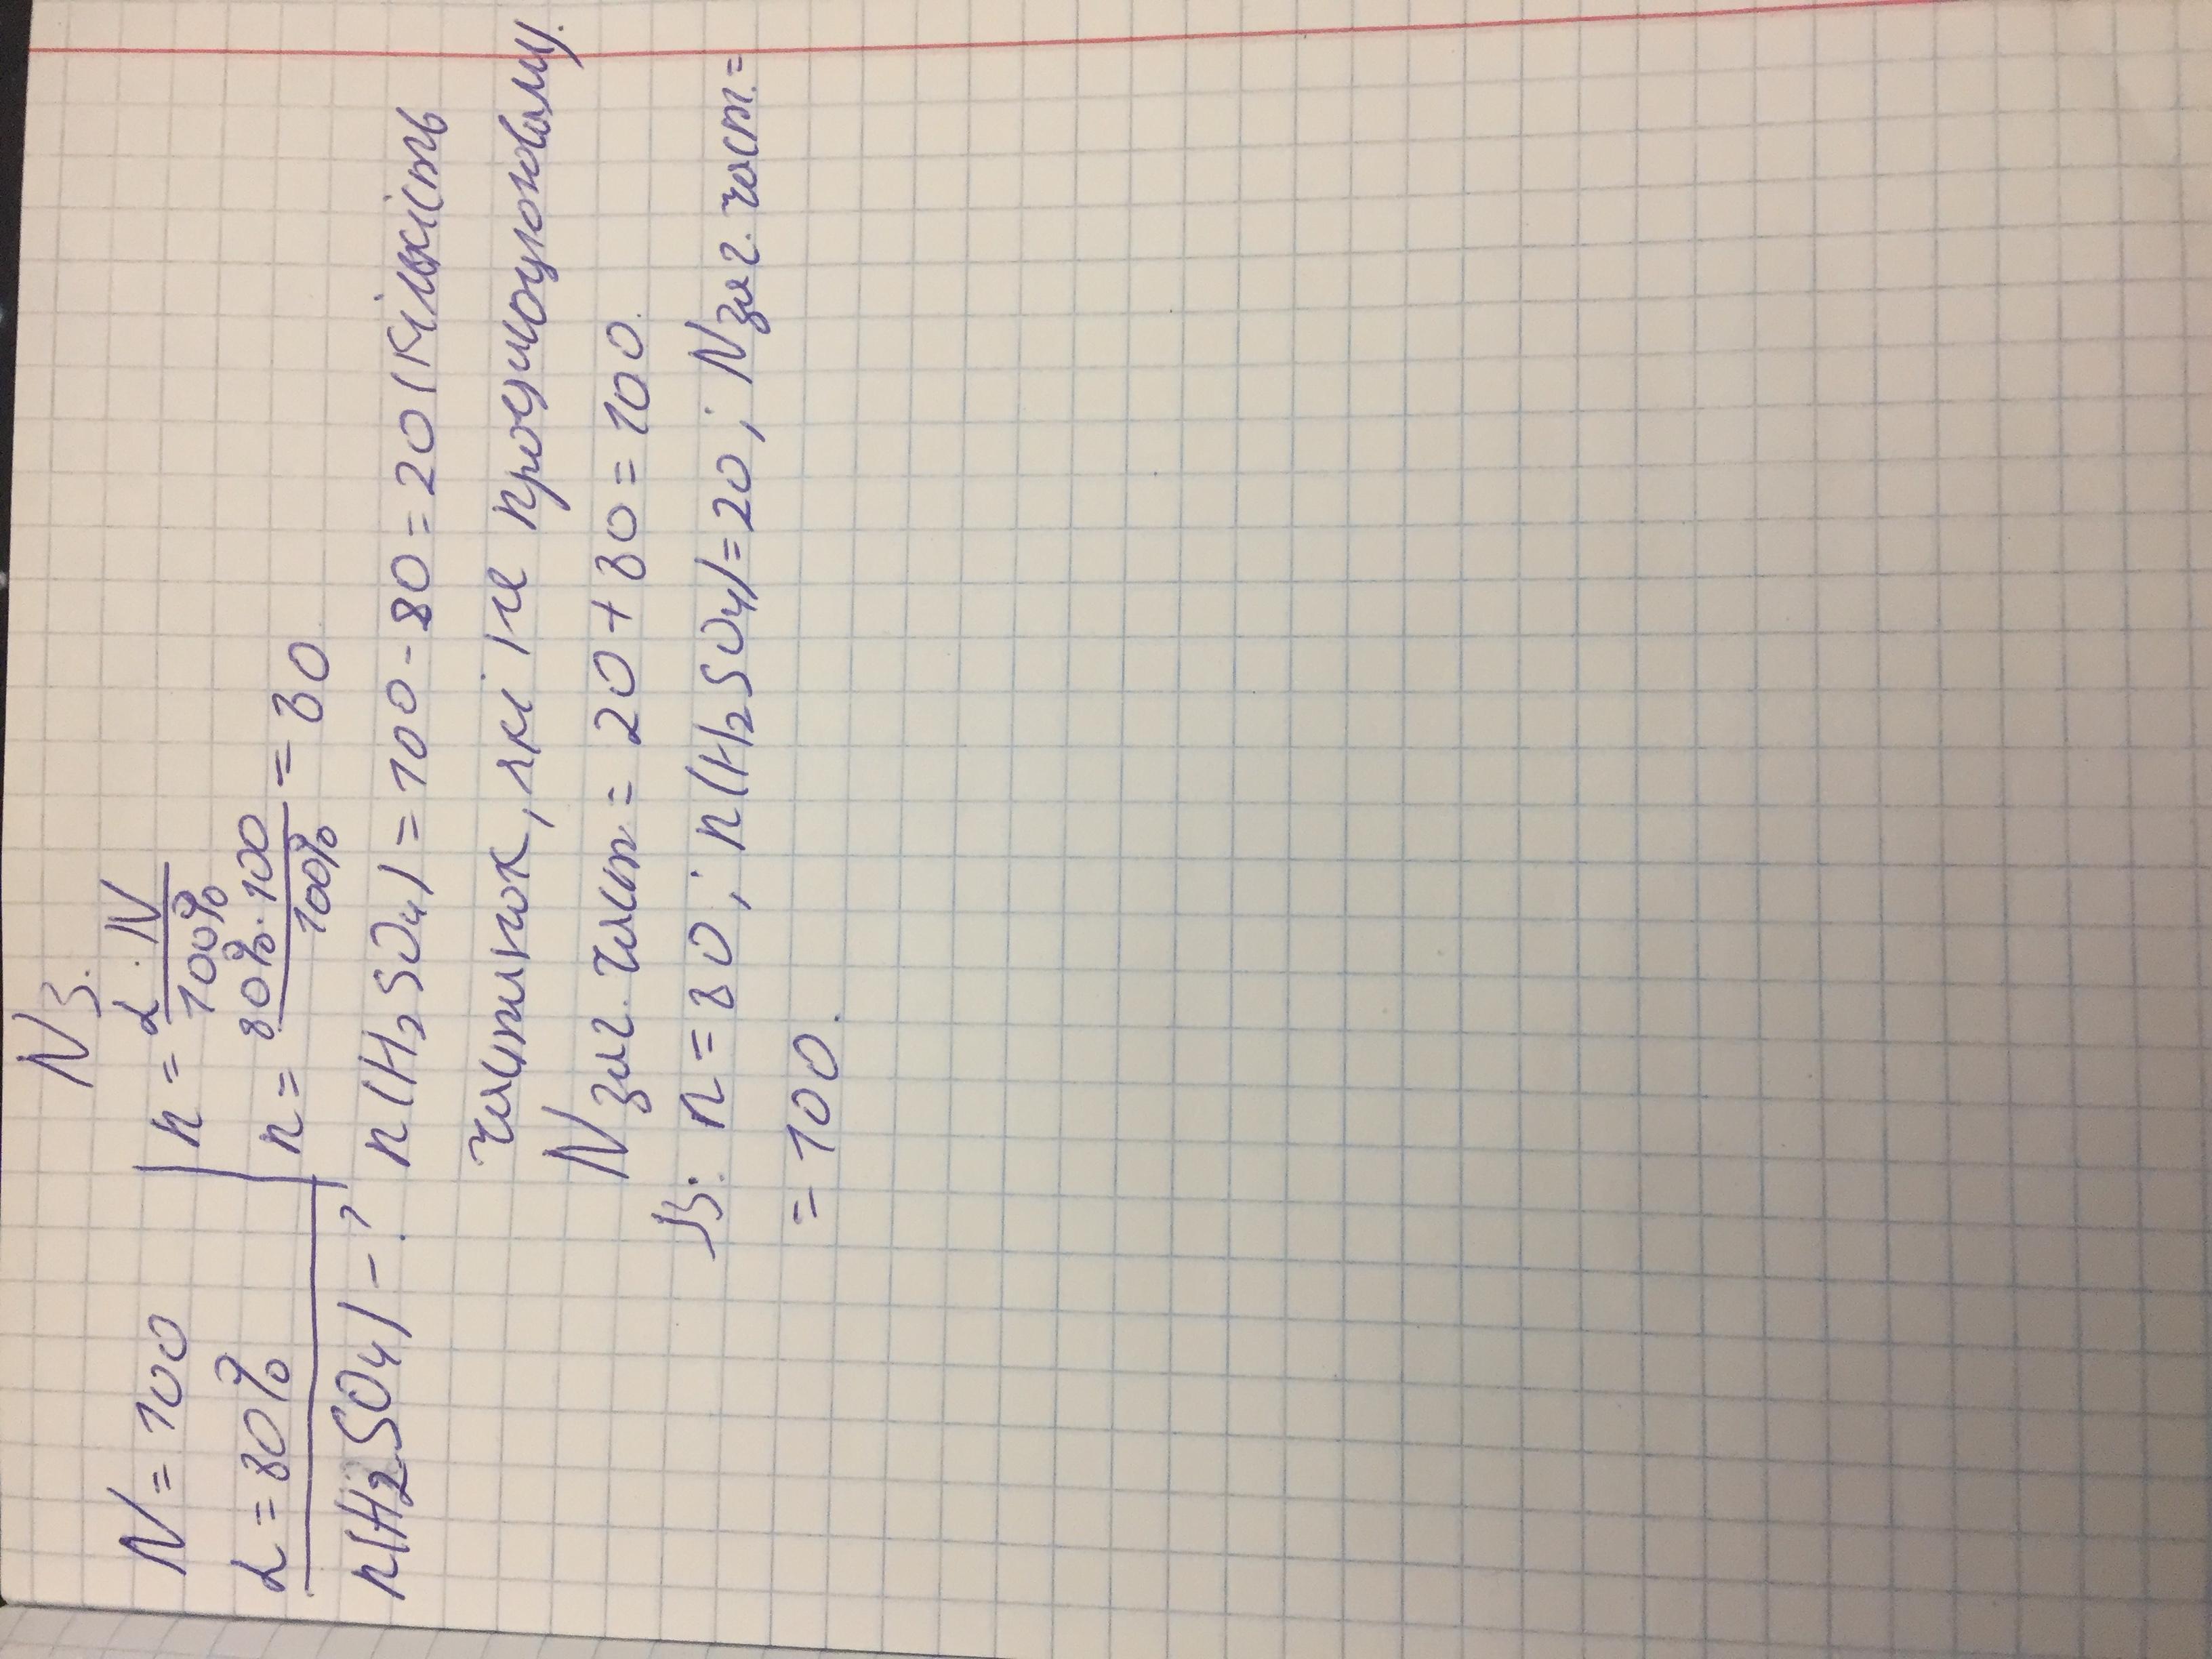 N 3.
N = 100
α = 80%
n(H₂SO₄) - ?
n = α · N / 100%
n = 80% · 100 / 100% = 80
n(H₂SO₄) = 100 - 80 = 20 (Кількість
частинок, які не продисоціювали).
N заг. част = 20 + 80 = 100.
В: n = 80; n(H₂SO₄) = 20; N заг. част. =
= 100.